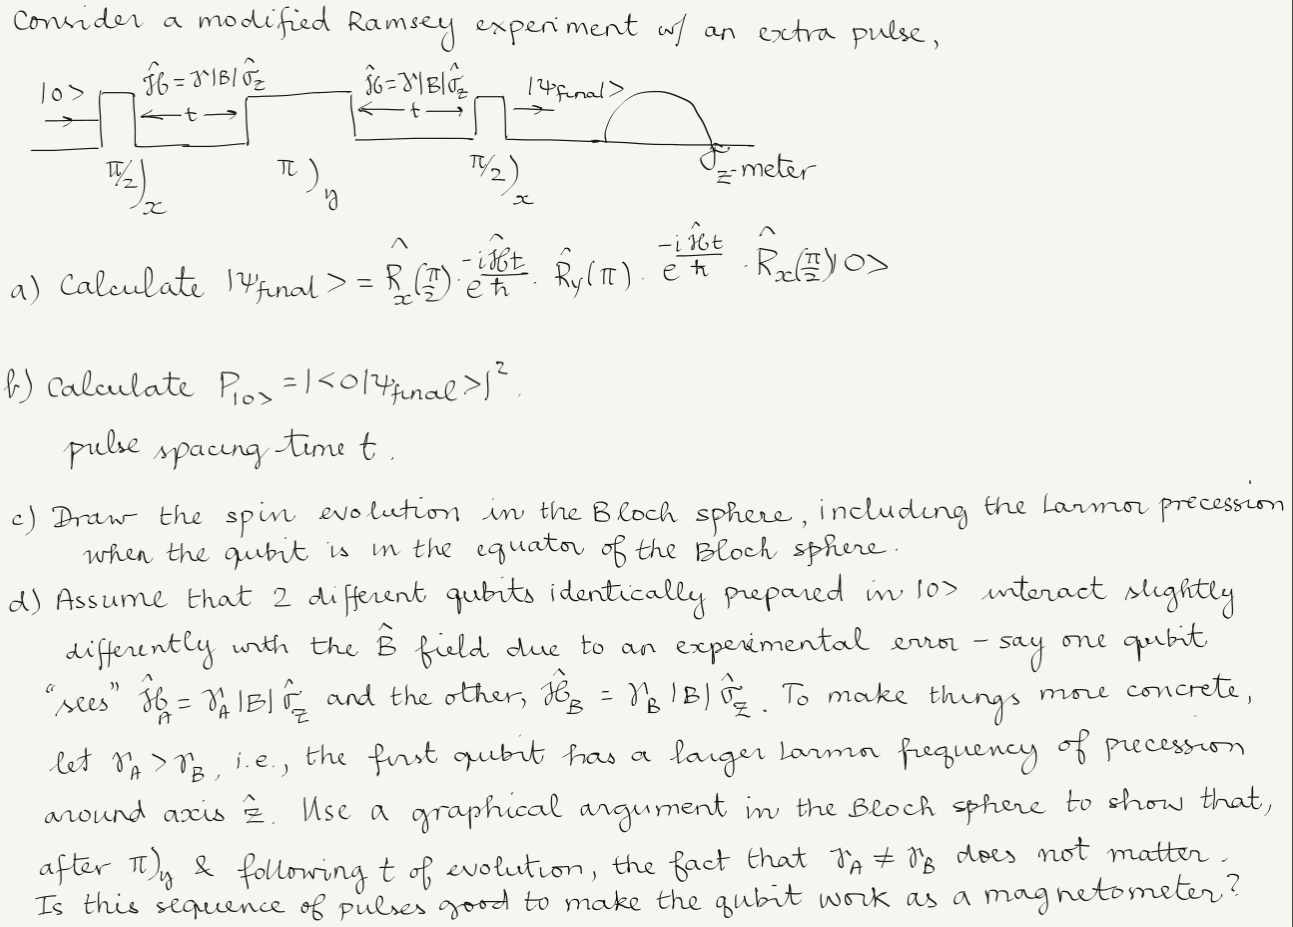 Consider a modified Ramsey experiment w/ an extra pulse,
|0> Ĥ = γ|B|σ̂_z Ĥ = γ|B|σ̂_z |Ψ_final>
t t
π/2)_x π)_y π/2)_x z-meter
a) Calculate |Ψ_final> = R̂_x(π/2) · e^(-iĤt/ħ) · R̂_y(π) · e^(-iĤt/ħ) · R̂_x(π/2)|0>
b) Calculate P_|0> = |<0|Ψ_final>|².
pulse spacing time t.
c) Draw the spin evolution in the Bloch sphere, including the Larmor precession
when the qubit is in the equator of the Bloch sphere.
d) Assume that 2 different qubits identically prepared in |0> interact slightly
differently with the B̂ field due to an experimental error – say one qubit
"sees" Ĥ_A = γ_A |B| σ̂_z and the other, Ĥ_B = γ_B |B| σ̂_z. To make things more concrete,
let γ_A > γ_B, i.e., the first qubit has a larger Larmor frequency of precession
around axis ẑ. Use a graphical argument in the Bloch sphere to show that,
after π)_y & following t of evolution, the fact that γ_A ≠ γ_B does not matter.
Is this sequence of pulses good to make the qubit work as a magnetometer?